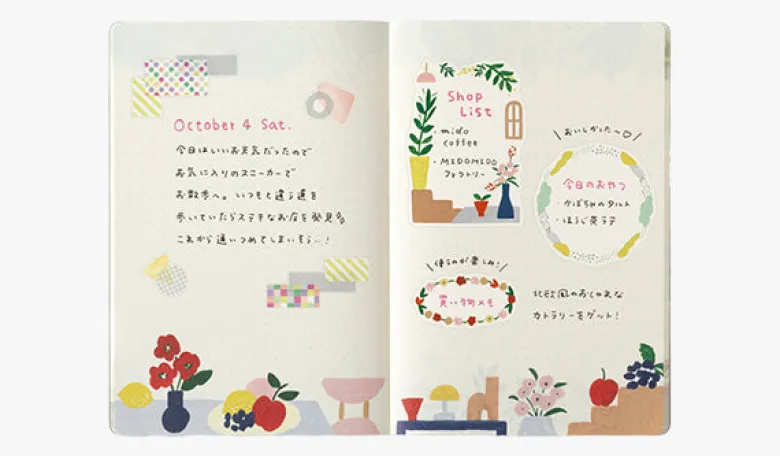 October 4 Sat.
今日はいいお天気だったので
お気に入りのスニーカーで
お散歩へ。いつもと違う道を
歩いていたらステキなお店を発見
これから通いつめてしまいそう…!
Shop
List
・mido
coffee
・MIDOMIDO
ファクトリー
おいしかった〜♡
今日のおやつ
・かぼちゃのタルト
・ほうじ茶ラテ
使うのが楽しみ!
買い物メモ
北欧風のおしゃれな
カトラリーをゲット!